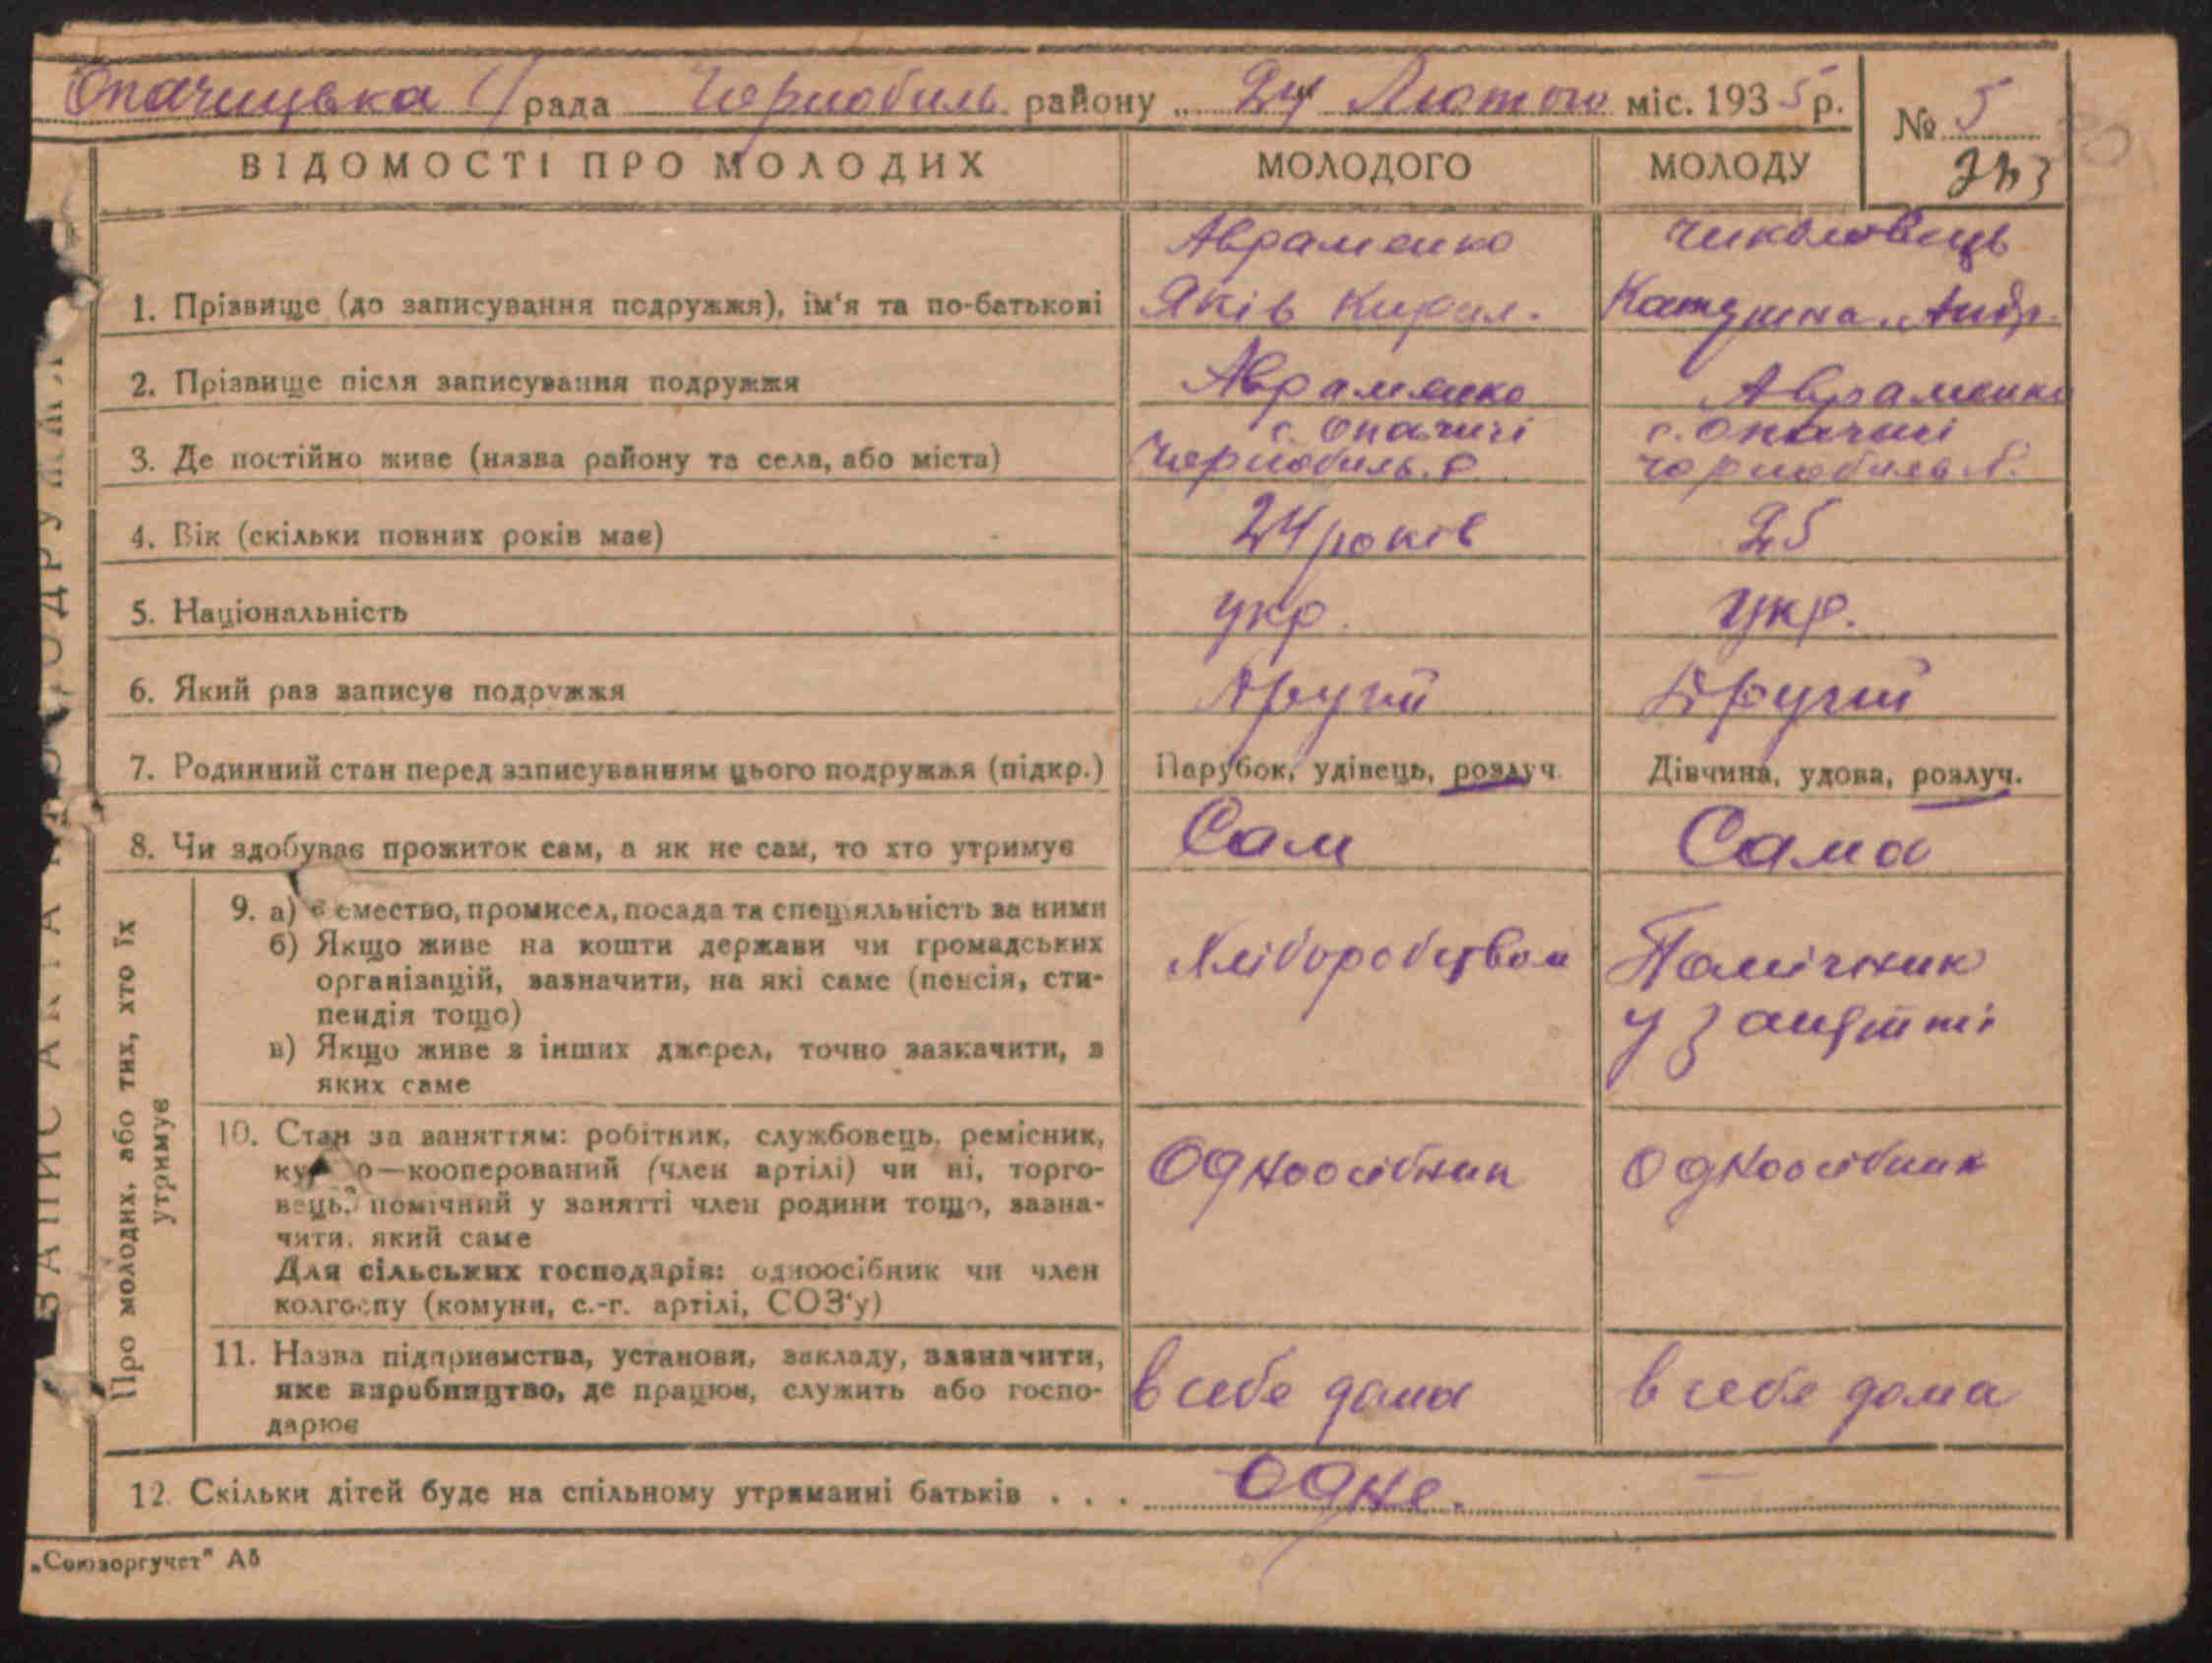 Опачицька с/рада Чорнобиль району „ 24 Лютого міс. 1935 р.
№ 5
ВІДОМОСТІ ПРО МОЛОДИХ МОЛОДОГО МОЛОДУ
Авраменко
1. Прізвище (до записування подружжя), ім‘я та по-батькові Яків Кирил. Андр.
2. Прізвище після записування подружжя Авраменко Авраменко
с. Опачичі с. Опачичі
3. Де постійно живе (назва району та села, або міста) Чорнобиль. Р. Чорнобиль Р.
4. Вік (скільки повних років має) 24 років 25
5. Національність укр. укр.
6. Який раз записує подружжя Другий Другий
7. Родинний стан перед записуванням цього подружжя (підкр.) Парубок, удівець, розлуч. Дівчина, удова, розлуч.
8. Чи здобуває прожиток сам, а як не сам, то хто утримує Сам Сама
Про молодих, або тих, хто їх утримує
9. а) емество, промисел, посада та спеціяльність за ними
б) Якщо живе на кошти держави чи громадських
організацій, зазначити, на які саме (пенсія, сти-
пендія тощо)
в) Якщо живе з інших джерел, точно зазначити, з
яких саме
Хліборобством
Помічник
у занятті
10. Стан за заняттям: робітник, службовець, ремісник,
ку о—кооперований (член артілі) чи ні, торго-
вець, помічний у занятті член родини тощо, зазна-
чити, який саме
Для сільських господарів: одноосібник чи член
колгоспу (комуни, с.-г. артілі, СОЗ‘у)
Одноосібник Одноосібник
11. Назва підприємства, установи, закладу, зазначити,
яке виробництво, де працює, служить або госпо-
дарює
в себе дома в себе дома
12. Скільки дітей буде на спільному утриманні батьків . . . Одне. —
„Союзоргучет" А5